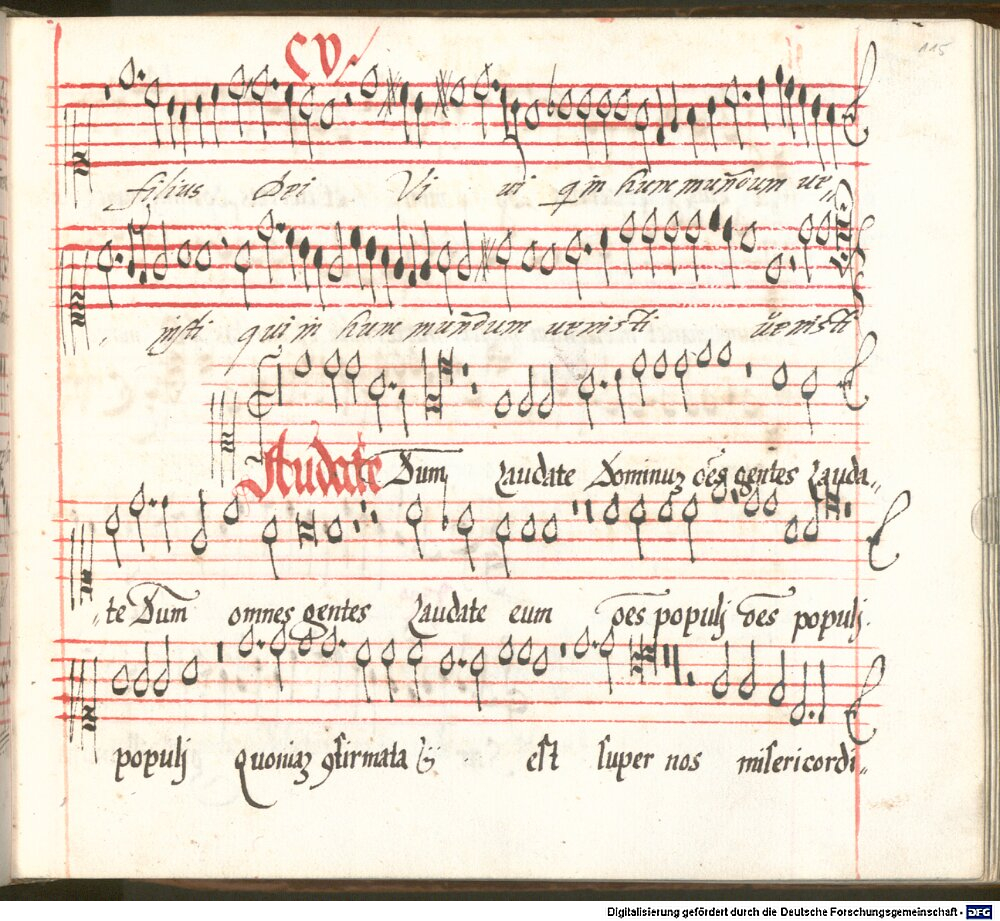 CV
115
filius Dei Vi vi q in hunc mundum ve„
nisti qui in hunc mundum venisti venisti
Laudate Dum Laudate Dominuz oēs gentes Lauda„
„te Dum omnes gentes Laudate eum oēs populj oēs populj.
populj Quoniaz 9firmata est super nos misericordi„
Digitalisierung gefördert durch die Deutsche Forschungsgemeinschaft - DFG